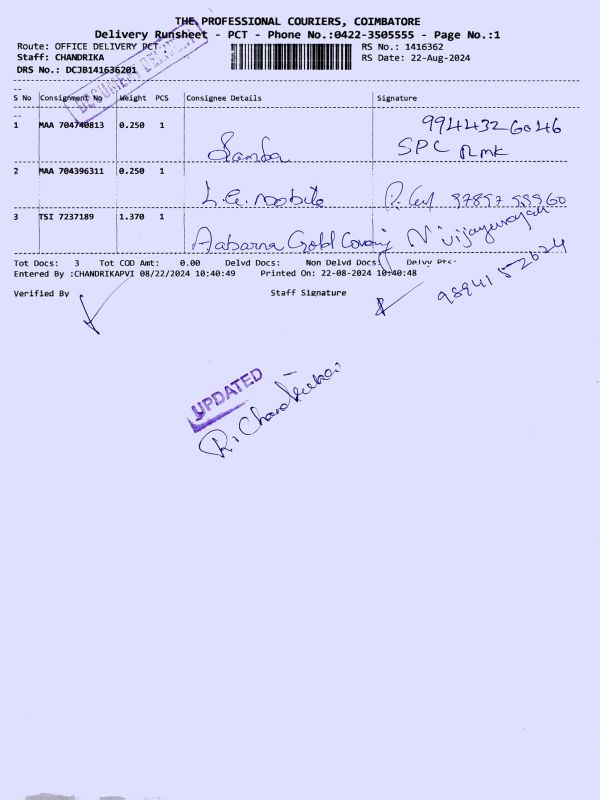 THE PROFESSIONAL COURIERS, COIMBATORE
Delivery Runsheet - PCT - Phone No.:0422-3505555 - Page No.:1
Route: OFFICE DELIVERY PCT
RS No.: 1416362
Staff: CHANDRIKA
RS Date: 22-Aug-2024
DRS No.: DCJB141636201
DOCUMENT
S No Consignment No Weight PCS Consignee Details Signature
1 MAA 704740813 0.250 1
9944326046
SPC RMK
2 MAA 704396311 0.250 1
L.G. mobile
3 TSI 7237189 1.370 1
Aabarna Gold Covering N. Vijayanarayan
9894152624
Tot Docs: 3 Tot COD Amt: 0.00 Delvd Docs: Non Delvd Docs: Delvy Pts:
Entered By :CHANDRIKAPVI 08/22/2024 10:40:49 Printed On: 22-08-2024 10:40:48
Verified By Staff Signature
UPDATED
R. Chandrika